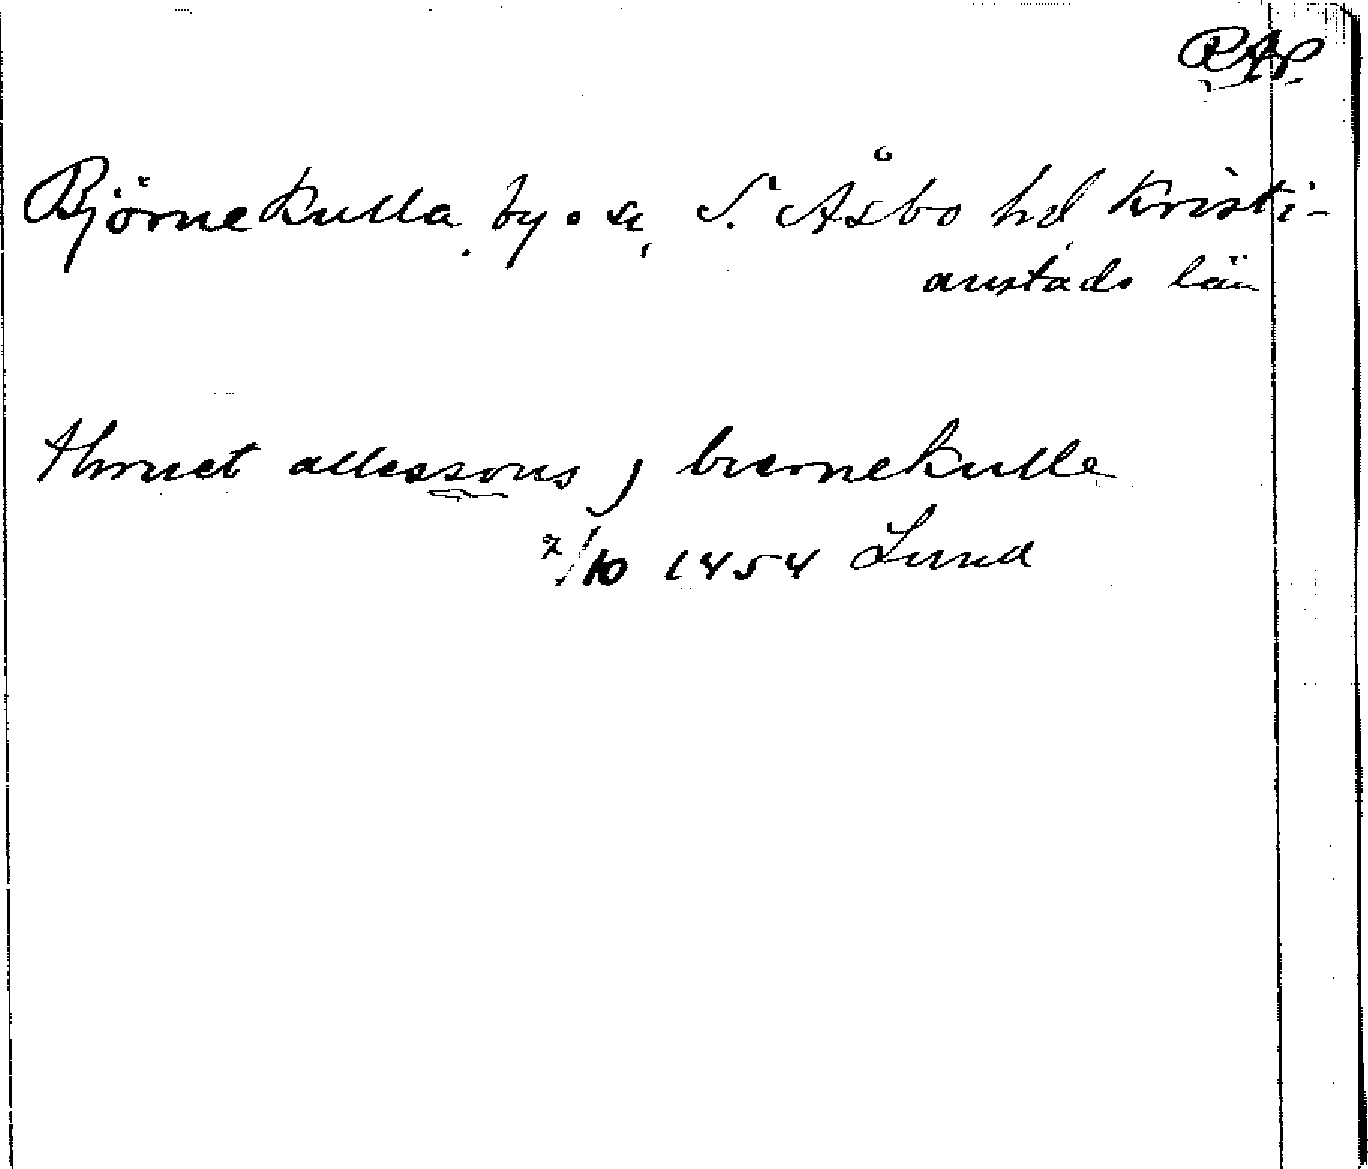 RAP
Björnekulla by o sn, S. Åsbo hd Kristi-
anstads län
thruet allessons j biernekulle
7/10 1454 Lund